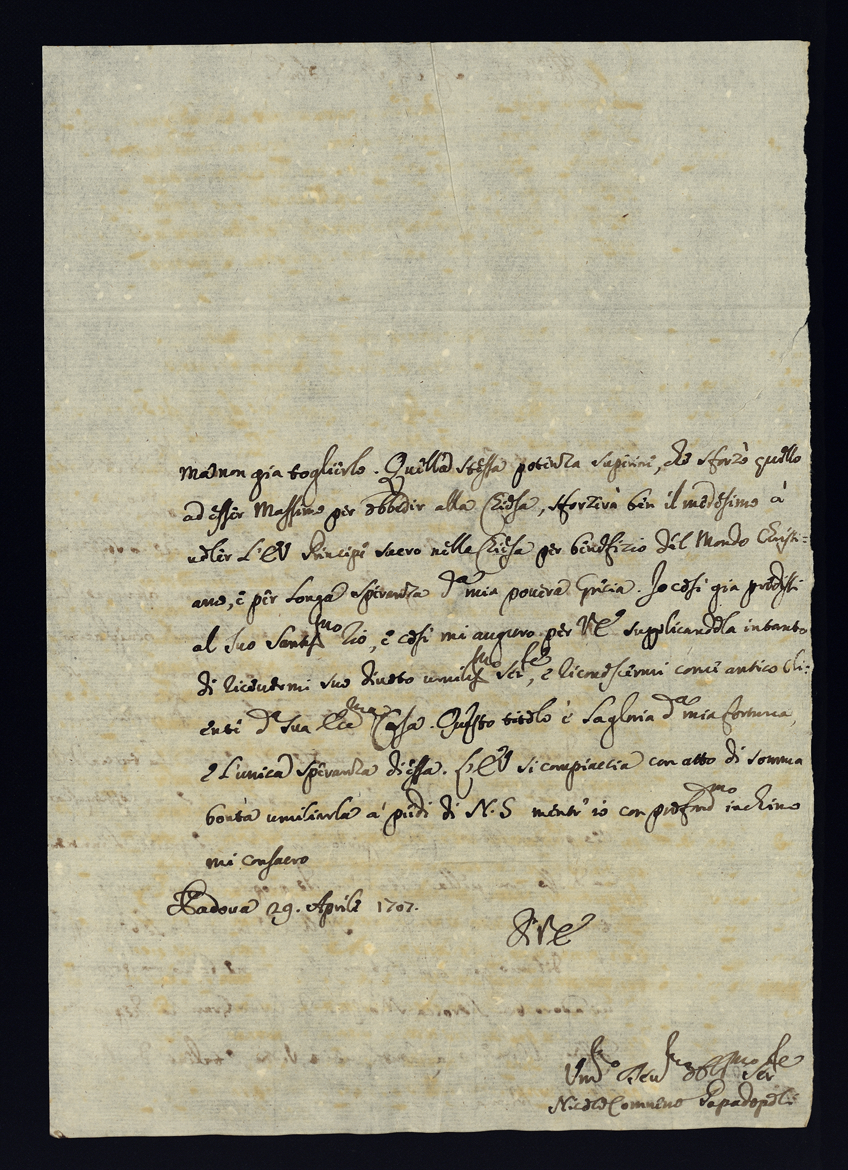 ma non gia togliirlo. Quella stessa potenza superiore, che sforzò quello
ad esser Massimo per obbedir alla Chiesa, sforzerà ben il medesimo à
voler L'EV Principe sacro nella Chiesa per benefizio del Mondo Christi=
ano, è per longa speranza d.a mia povera Grecia. Io cosi gia predissi
al suo Santiss.mo Zio, è cosi mi auguro per VE supplicandola intanto
di ricevermi suo divoto umiliss.mo ser.e, è riconoscermi come antico cli=
ente d.a sua Ecc.ma Casa. Questo titolo è la gloria d.a mia fortuna,
è l'unica speranza di essa. L'EV si compiaccia con atto di somma
bontà umiliarla à piedi di N.S mentr'io con profond.mo inchino
mi consacro
Padova 29. Aprile 1707.
Di VE
Um.o Dev.o obl.mo Ser.e
Nicolò Comneno Papadopoli